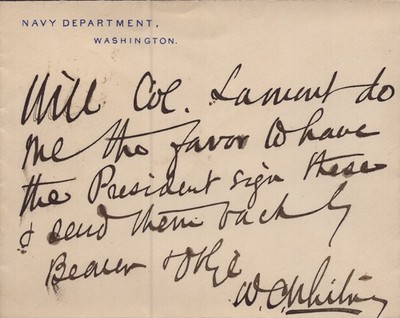 NAVY DEPARTMENT,
WASHINGTON.
Will Col. Lamont do
me the favor to have
the President sign these
& send them back by
Bearer & oblge
W. C. Whitney